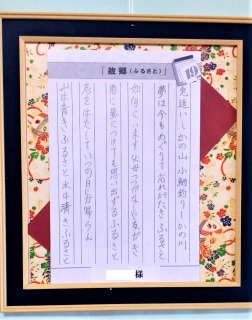 「故郷(ふるさと)」
19
兎追いしかの山 小鮒釣りしかの川
夢は今もめぐりて 忘れがたき ふるさと
如何にいます 父母 つつがなしや 友がき
雨に風につけても 思い出ずる ふるさと
志をはたして いつの日にか帰らん
山は青きふるさと 水は清き ふるさと
様